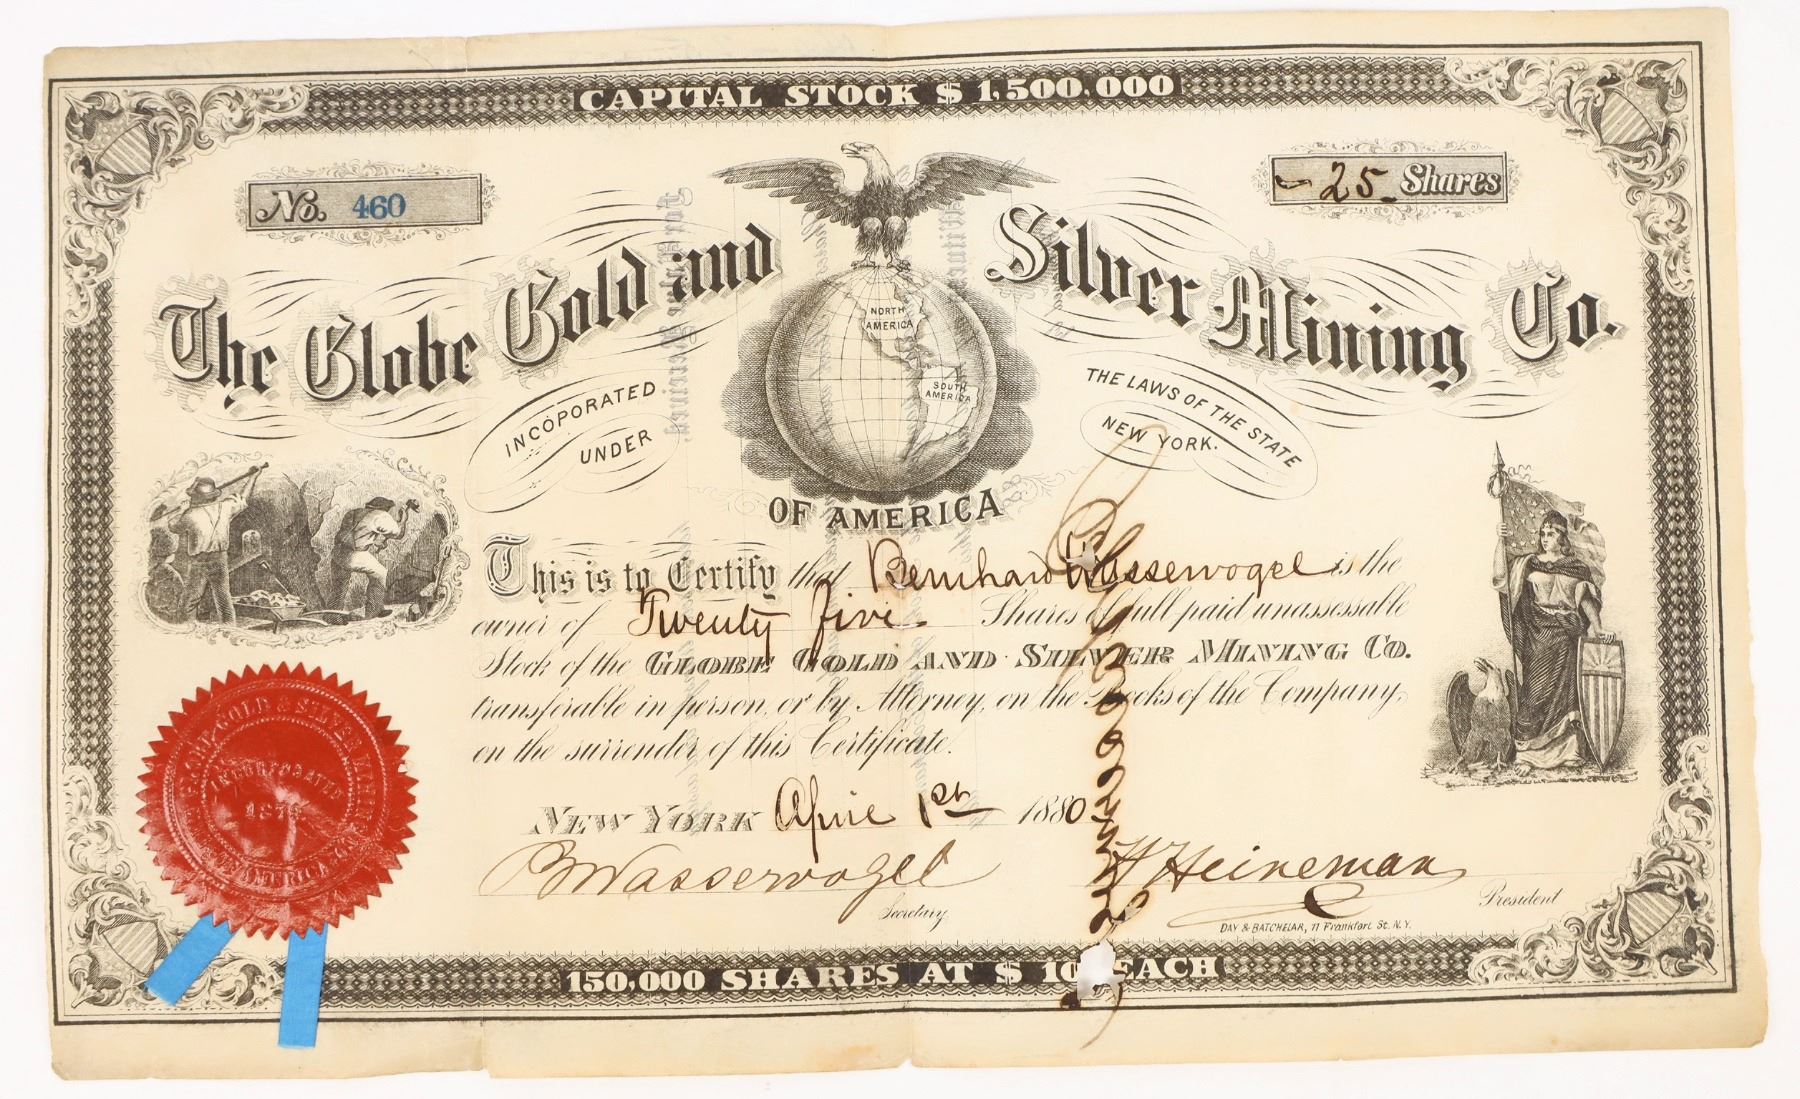 CAPITAL STOCK $ 1,500,000
No. 460
25 Shares
The Globe Gold and Silver Mining Co.
NORTH AMERICA
SOUTH AMERICA
INCOPORATED UNDER
THE LAWS OF THE STATE
NEW YORK.
OF AMERICA
This is to Certify that Bernhard Wasservogel is the
owner of Twenty five Shares of full paid unassessable
Stock of the GLOBE GOLD AND SILVER MINING CO.
transferable in person, or by Attorney, on the Books of the Company,
on the surrender of this Certificate.
NEW YORK April 1st 1880
B Wasservogel
Secretary
H Heineman
President
DAY & BATCHELAR, 71 Frankfort St. N.Y.
GOLD & SILVER
INCORPORATED
OF AMERICA
150,000 SHARES AT $ 10 EACH